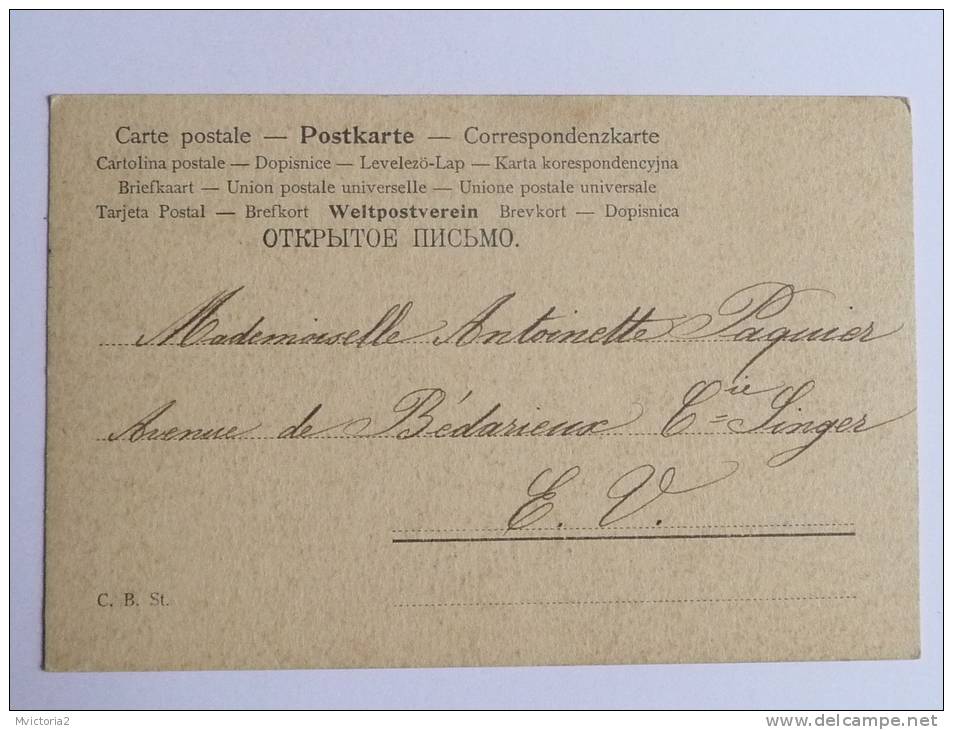 Carte postale — Postkarte — Correspondenzkarte
Cartolina postale — Dopisnice — Levelezö-Lap — Karta korespondencyjna
Briefkaart — Union postale universelle — Unione postale universale
Tarjeta Postal — Brefkort Weltpostverein Brevkort — Dopisnica
ОТКРЫТОЕ ПИСЬМО.
Mademoiselle Antoinette Paquier
Avenue de Bédarieux Cie Singer
E. V.
C. B. St.
Mvictoria2
www.delcampe.net